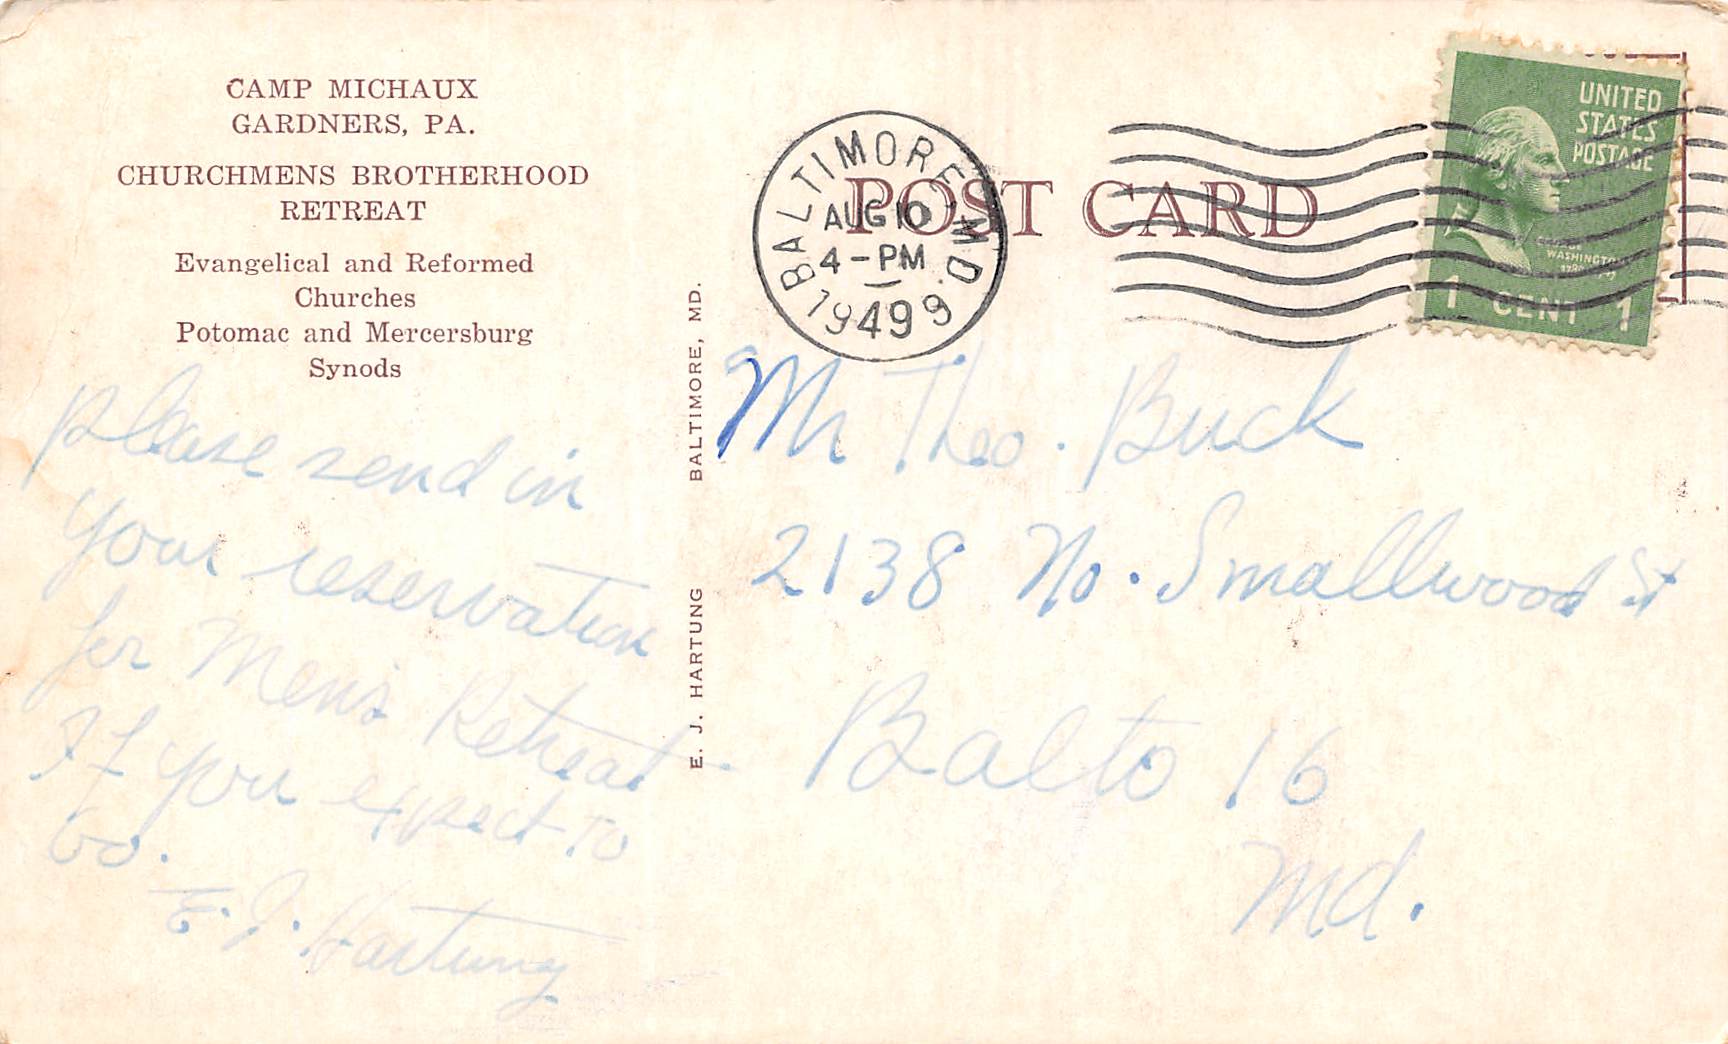 CAMP MICHAUX
GARDNERS, PA.
CHURCHMENS BROTHERHOOD
RETREAT
Evangelical and Reformed
Churches
Potomac and Mercersburg
Synods
please send in
your reservation
for Men's Retreat
If you expect to
Go.
E. J. Hartung
E. J. HARTUNG BALTIMORE, MD.
POST CARD
BALTIMORE, MD.
AUG 10
4-PM
19499
UNITED
STATES
POSTAGE
WASHINGTON
1 CENT 1
Mr Theo. Buck
2138 No. Smallwood St
Balto 16
Md.